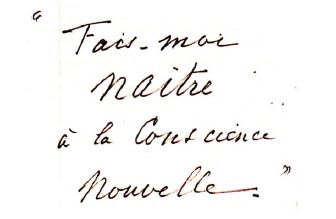 “Fais-moi
naître
à la Conscience
Nouvelle.”